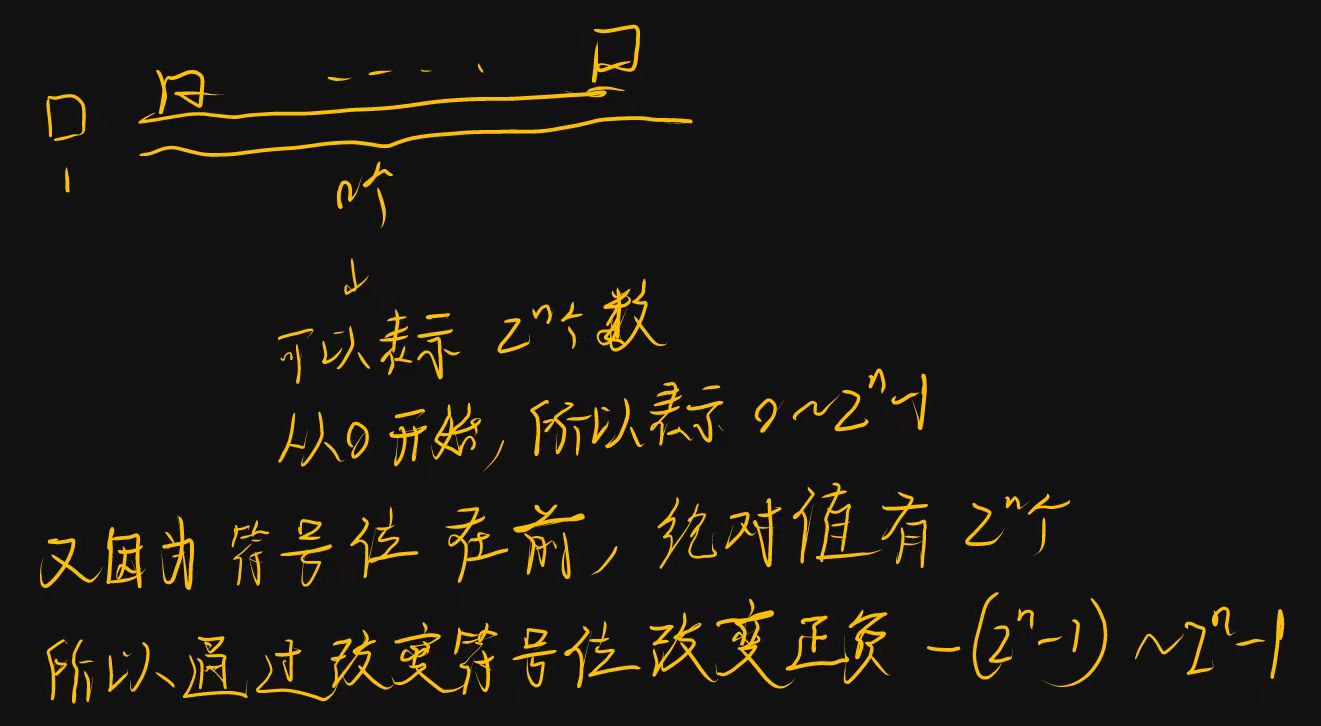 1
n个
↓
可以表示 2ⁿ个数
从0开始, 所以表示 0~2ⁿ-1
又因为符号位在前, 绝对值有 2ⁿ个
所以通过改变符号位改变正负 -(2ⁿ-1) ~2ⁿ-1